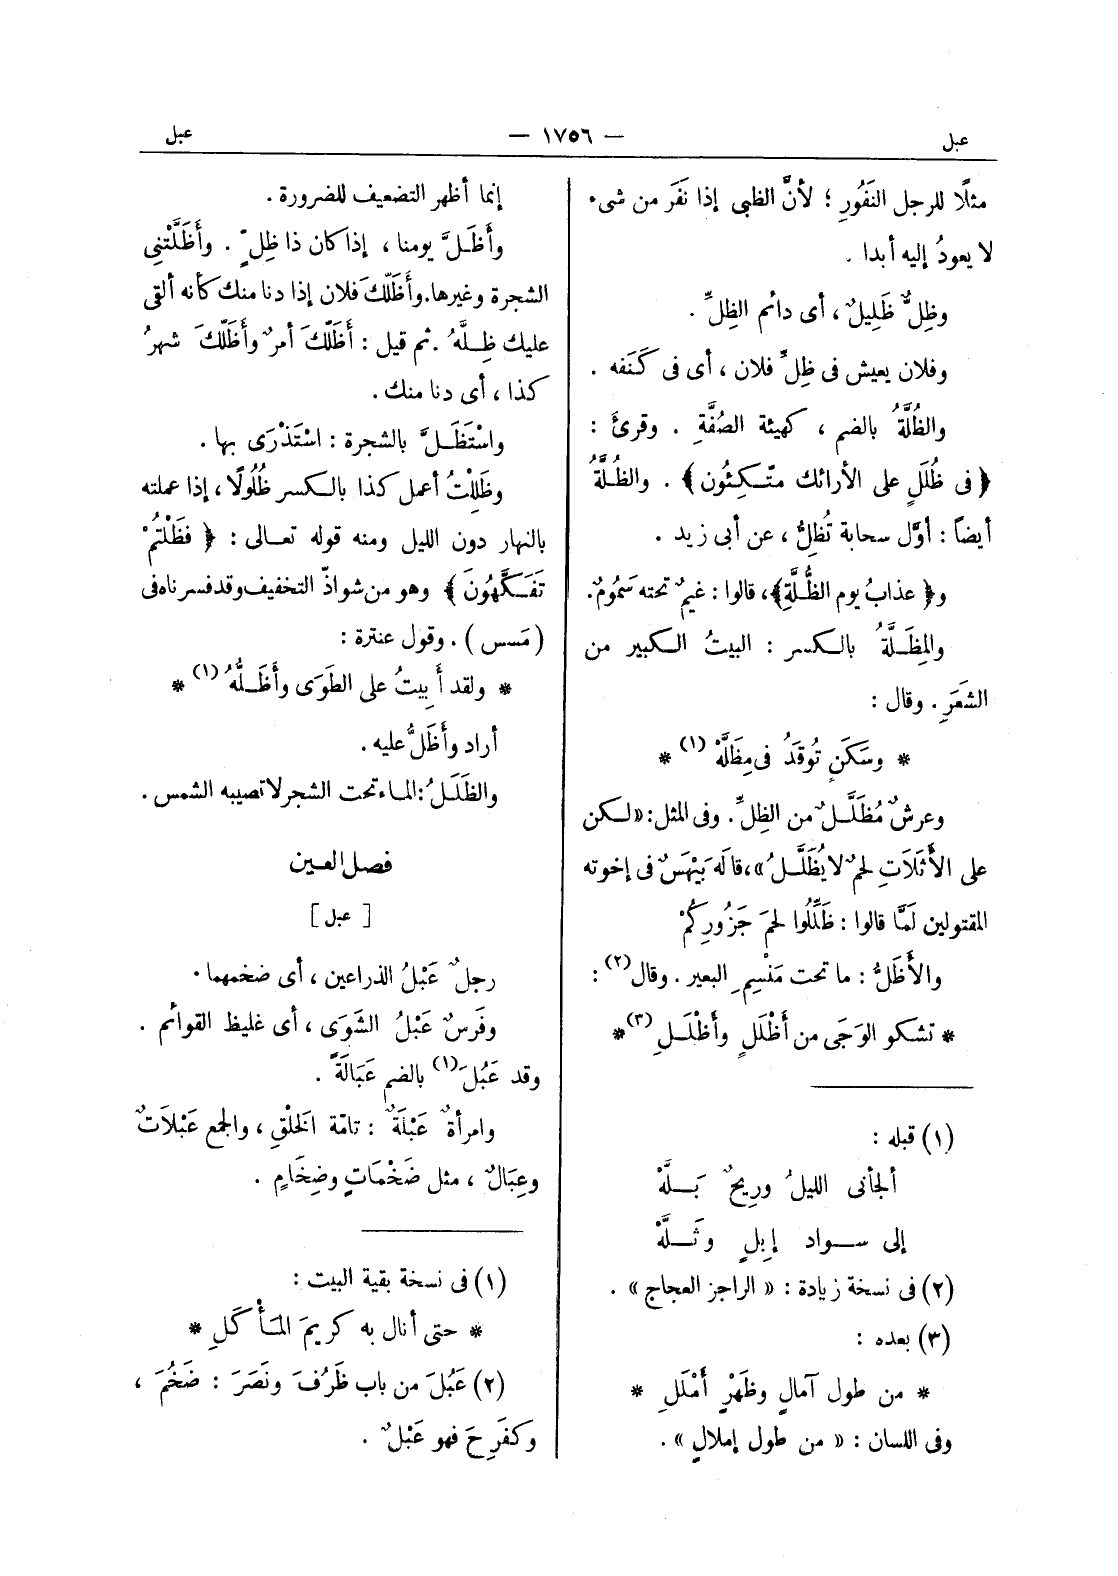 عبل
— ١٧٥٦ —
عبل
مثلًا للرجل النَفُورِ ؛ لأنَّ الظبى إذا نَفَر من شىء
لا يعودُ إليه أبدا .
وظِلٌّ ظَلِيلٌ ، أى دائم الظِلِّ .
وفلان يعيش فى ظِلِّ فلان ، أى فى كَنَفه .
والظُلَّةُ بالضم ، كهيئة الصُفَّةِ . وقرئَ :
﴿ فى ظُلَلٍ على الأرائك متّكِئون ﴾ . والظُلَّةُ
أيضاً : أوّل سحابة تُظِلُّ ، عن أبى زيد .
و﴿ عذابُ يوم الظُّلَّةِ﴾، قالوا : غيمٌ تحته سَمُومٌ.
والمِظَلَّةُ بالكسر : البيتُ الكبير من
الشَعَرِ . وقال :
* وسَكَنٍ تُوقَدُ فى مِظَلَّهْ (١) *
وعرشٌ مُظَلَّلٌ من الظِلِّ . وفى المثل : «لكن
على الأَثَلَاتِ لحمٌ لا يُظَلَّلُ» ، قاله بَيْهَسٌ فى إخوته
المقتولين لَمَّا قالوا : ظَلِّلُوا لحمَ جَزُورِكُمْ
والأَظَلُّ : ما تحت مَنْسِمِ البعير . وقال (٢) :
* تشكو الوَجَى من أَظْلَلٍ وأَظْلَلِ (٣) *
(١) قبله :
ألجأنى الليلُ وريحٌ بَلَّهْ
إلى سواد إبلٍ وثَلَّهْ
(٢) فى نسخة زيادة : « الراجز العجاج » .
(٣) بعده :
* من طول آمالٍ وظَهْرٍ أَمْلَلِ *
وفى اللسان : « من طول إملالٍ » .
إنما أظهر التضعيف للضرورة .
وأَظَلَّ يومنا ، إذا كان ذا ظِلٍّ . وأَظَلَّتْنِى
الشجرة وغيرها . وأَظَلَّكَ فلان إذا دنا منك كأنه ألقى
عليك ظِلَّهُ . ثم قيل : أَظَلَّكَ أمرٌ وأَظَلَّكَ شهرُ
كذا ، أى دنا منك .
واسْتَظَلَّ بالشجرة : اسْتَذْرَى بها .
وظَلِلْتُ أعمل كذا بالكسر ظُلُولًا ، إذا عملته
بالنهار دون الليل ومنه قوله تعالى : ﴿ فَظَلْتُمْ
تَفَكَّهُونَ ﴾ وهو من شواذّ التخفيف وقد فسرناه فى
( مَسس ) . وقول عنترة :
* ولقد أَبِيتُ على الطَوَى وأَظَلُّهُ (١) *
أراد وأَظَلُّ عليه .
والظَلَلُ : الماء تحت الشجر لا تصيبه الشمس .
فصل العين
[ عبل ]
رجلٌ عَبْلُ الذراعين ، أى ضخمهما .
وفَرَسٌ عَبْلُ الشَوَى ، أى غليظ القوائم .
وقد عَبُلَ (١) بالضم عَبَالَةً .
وامرأةٌ عَبْلَةٌ : تامّة الخَلْقِ ، والجمع عَبْلَاتٌ
وعِبَالٌ ، مثل ضَخْمَاتٍ وضِخَامٍ .
(١) فى نسخة بقية البيت :
* حتى أنال به كريمَ المَأْكَلِ *
(٢) عَبُلَ من باب ظَرُفَ ونَصَرَ : ضَخُمَ ،
وكفَرِحَ فهو عَبْلٌ .